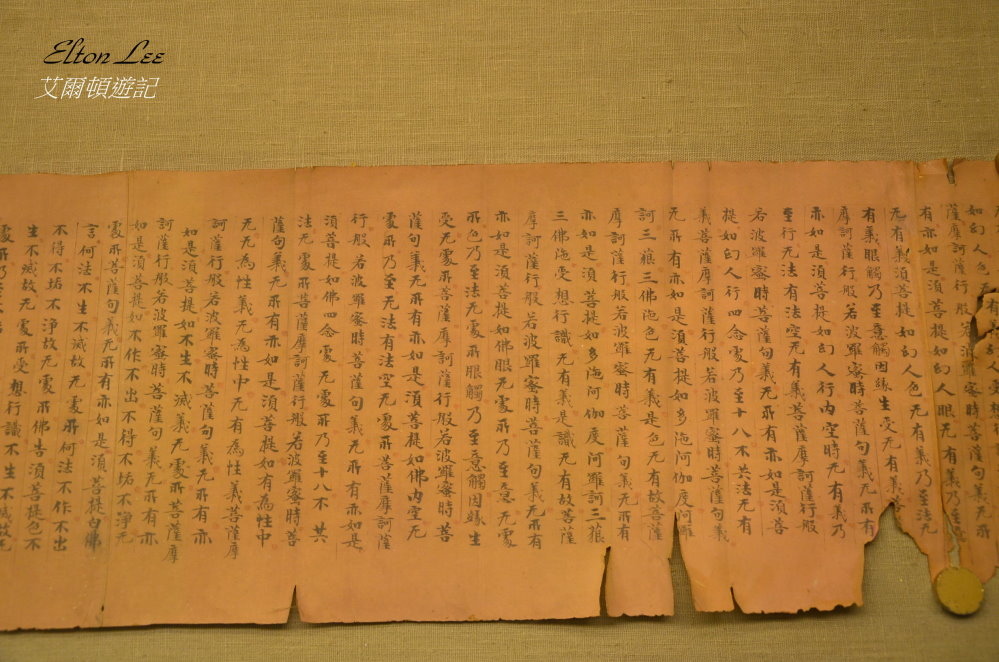 Elton Lee
艾爾頓遊記
如幻人色无
薩摩訶薩行般若波羅蜜時菩薩句義无所
有亦如是須菩提如幻人眼无有義乃至意
无有義須菩提如幻人色无有義乃至法无
有義眼觸乃至意觸因緣生受无有義菩
摩訶薩行般若波羅蜜時菩薩句義无所有
亦如是須菩提如幻人行內空時无有義乃
至行无法有法空无有義菩薩摩訶薩行般
若波羅蜜時菩薩句義无所有亦如是須菩
提如幻人行四念處乃至十八不共法无有
義菩薩摩訶薩行般若波羅蜜時菩薩句義
无所有亦如是須菩提如多陁阿伽度阿羅
訶三藐三佛陁色无有義是色无有故菩薩
摩訶薩行般若波羅蜜時菩薩句義无所有
亦如是須菩提如多陁阿伽度阿羅訶三藐
三佛陁受想行識无有義是識无有故菩薩
摩訶薩行般若波羅蜜時菩薩句義无所有
亦如是須菩提如佛眼无處所乃至意无處
所色乃至法无處所眼觸乃至意觸因緣生
受无處所菩薩摩訶薩行般若波羅蜜時菩
薩句義无所有亦如是須菩提如佛內空无
處所乃至无法有法空无處所菩薩摩訶薩
行般若波羅蜜時菩薩句義无所有亦如是
須菩提如佛四念處无處所乃至十八不共
法无處所菩薩摩訶薩行般若波羅蜜時菩
薩句義无所有亦如是須菩提如有為性中
无无為性義无為性中无有為性義菩薩摩
訶薩行般若波羅蜜時菩薩句義无所有亦
如是須菩提如不生不滅義无處所菩薩摩
訶薩行般若波羅蜜時菩薩句義无所有亦
如是須菩提如不作不出不得不垢不淨无
處所菩薩句義无所有亦如是須菩提白佛
言何法不生不滅故无處所何法不作不出
不得不垢不淨故无處所佛告須菩提色不
生不滅故无處所受想行識不生不滅故无
處所乃至